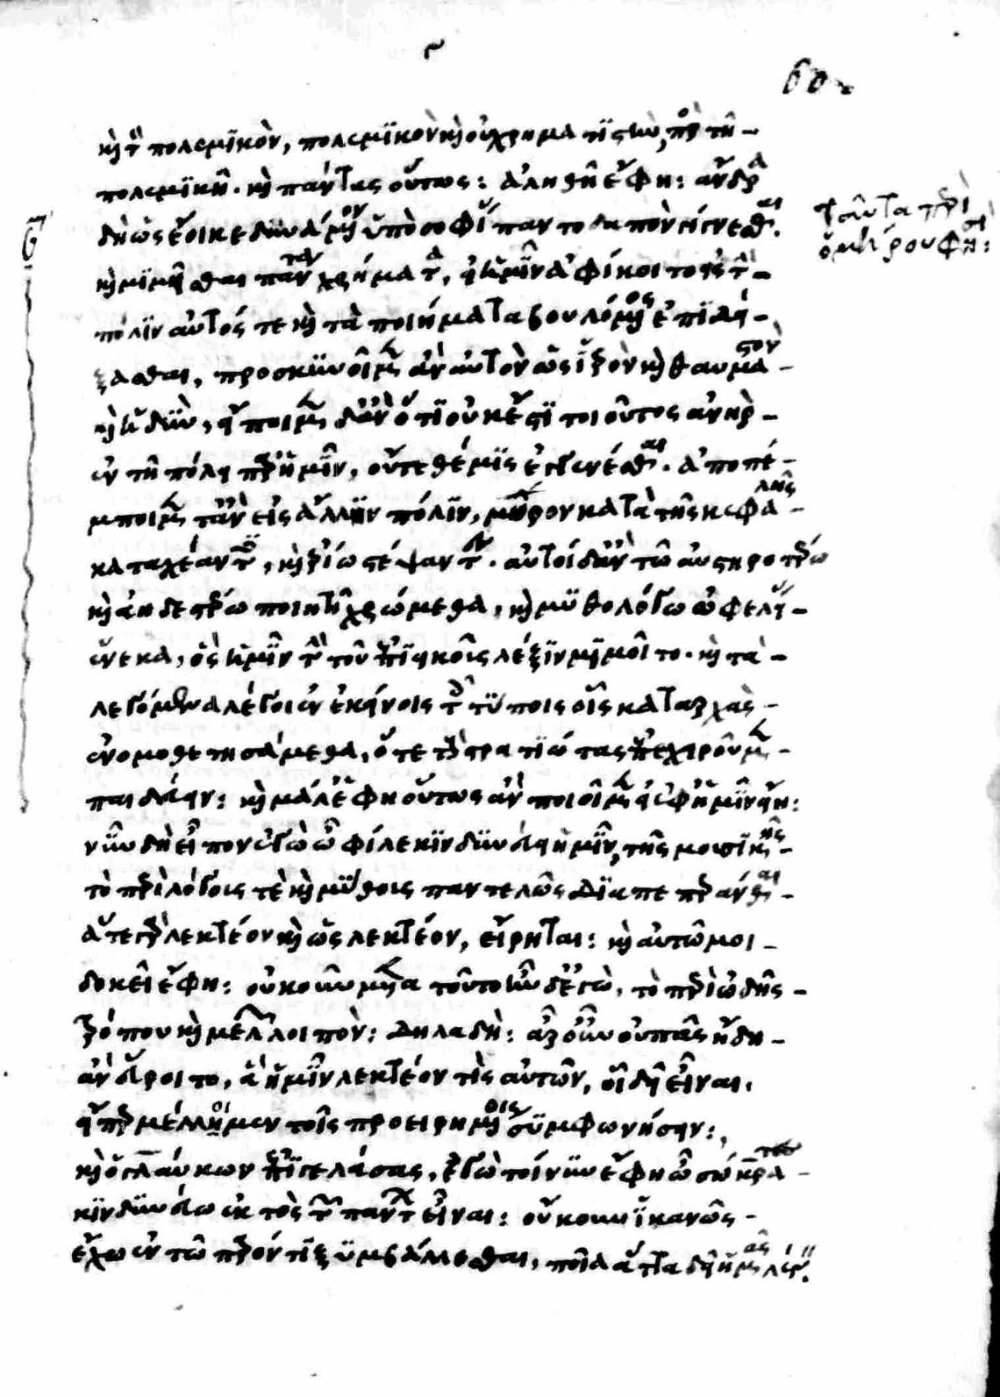 60
καὶ τὸν πολεμικὸν, πολεμικὸν καὶ οὐ χρηματιστὴν πρὸς τῆ
πολεμικῆ. καὶ πάντας οὕτως: ἀληθῆ ἔφη: ἄνδρα
δὴ ὡς ἔοικε δυνάμενον ὑπὸ σοφίας παντοδαπὸν γίγνεσθαι.
ταῦτα περὶ
ὁμήρου φησι:
καὶ μιμεῖσθαι πάντα χρήματα, εἰ ἡμῖν ἀφίκοιτο εἰς τὴν
πόλιν αὐτός τε καὶ τὰ ποιήματα βουλόμενος ἐπιδεί
ξασθαι, προσκυνοῖμεν ἂν αὐτὸν ὡς ἱερὸν καὶ θαυμαστὸν
καὶ ἡδὺν, εἴποιμεν δ' ἂν ὅτι οὐκ ἔστι τοιοῦτος ἀνὴρ
ἐν τῆ πόλει παρ' ἡμῖν, οὔτε θέμις ἐγγενέσθαι. ἀποπέ
μποιμεν τ' ἂν εἰς ἄλλην πόλιν, μύρον κατὰ τῆς κεφαλῆς
καταχέαντες, καὶ ἐρίω στέψαντες. αὐτοὶ δ' ἂν τῶ αὐστηροτέρω
καὶ ἀηδεστέρω ποιητῆ χρώμεθα, καὶ μυθολόγω ὠφελείας
ἕνεκα, ὃς ἡμῖν τὴν τοῦ ἐπιεικοῦς λέξιν μιμοῖτο. καὶ τὰ
λεγόμενα λέγοι ἐν ἐκείνοις τοῖς τύποις οἷς κατ' ἀρχὰς
ἐνομοθετησάμεθα, ὅτε τοὺς στρατιώτας ἐπεχειροῦμεν
παιδεύειν: καὶ μάλ' ἔφη οὕτως ἂν ποιοῖμεν εἰ ἐφ' ἡμῖν εἴη:
νῦν δὴ εἶπον ἐγὼ ὦ φίλε κινδυνεύει ἡμῖν, τῆς μουσικῆς
τὸ περὶ λόγους τε καὶ μύθους παντελῶς διαπεπεράνθαι
ἅ τε γὰρ λεκτέον καὶ ὡς λεκτέον, εἴρηται: καὶ αὐτῶ μοι
δοκεῖ ἔφη: οὐκοῦν μετὰ τοῦτο ἦν δ' ἐγὼ, τὸ περὶ ὠδῆς
τρόπου καὶ μελῶν λοιπὸν: δηλαδὴ: ἆρ' οὖν οὐ πᾶς ἤδη
ἂν εὕροι το, ἃ ἡμῖν λεκτέον περὶ αὐτῶν, οἷα δεῖ εἶναι.
εἴπερ μέλλοιμεν τοῖς προειρημένοις συμφωνήσειν:
καὶ ὁ γλαύκων ἐπιγελάσας, ἐγὼ τοίνυν ἔφη ὦ σώκρατες
κινδυνεύω ἐκτὸς τῶν πάντων εἶναι: οὔκουν ἱκανῶς
ἔχω ἐν τῶ παρόντι ξυμβάλλεσθαι, ποῖα ἄττα δεῖ ἡμᾶς λέγειν.